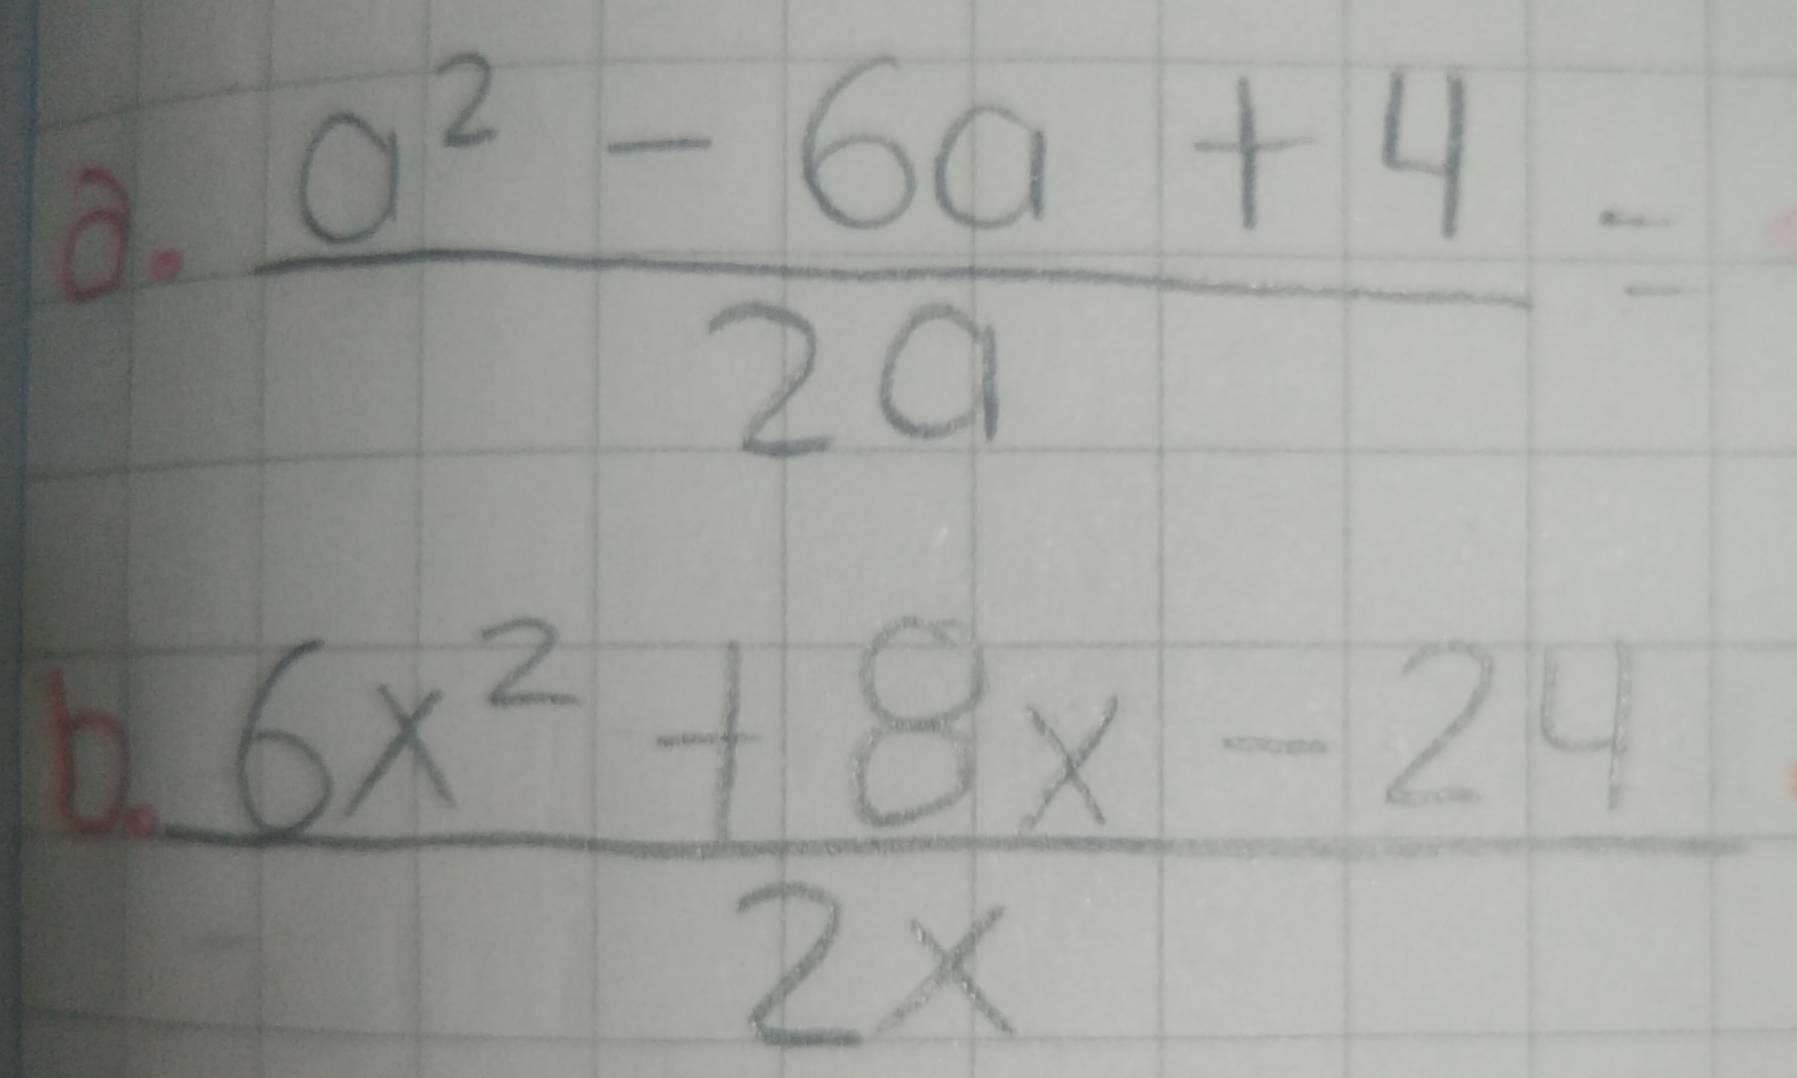 a. a² - 6a + 4 =
2a
b. 6x² + 8x - 24
2x